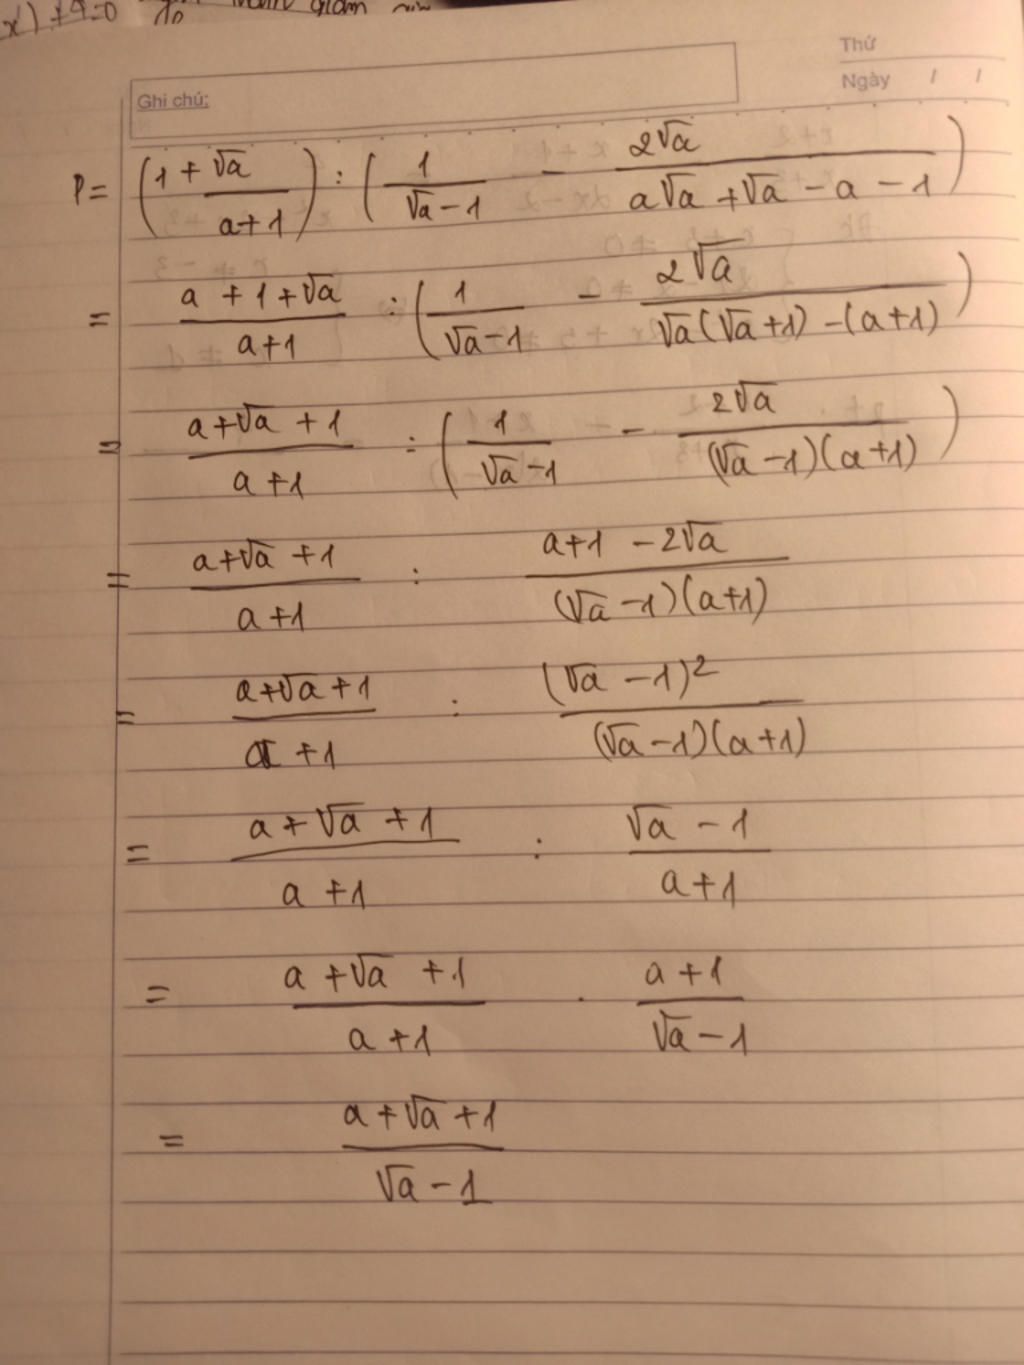 x) + 9 = 0
Thứ
Ngày / /
Ghi chú:
P = (1 + √a/(a+1)) : (1/(√a−1) − 2√a/(a√a + √a − a − 1))
= (a + 1 + √a)/(a+1) : (1/(√a−1) − 2√a/(√a(√a+1) − (a+1)))
= (a+√a + 1)/(a+1) : (1/(√a−1) − 2√a/((√a−1)(a+1)))
= (a+√a + 1)/(a+1) : (a+1 − 2√a)/((√a−1)(a+1))
= (a+√a+1)/(a+1) : (√a−1)²/((√a−1)(a+1))
= (a+√a+1)/(a+1) : (√a−1)/(a+1)
= (a+√a+1)/(a+1) . (a+1)/(√a−1)
= (a+√a+1)/(√a−1)